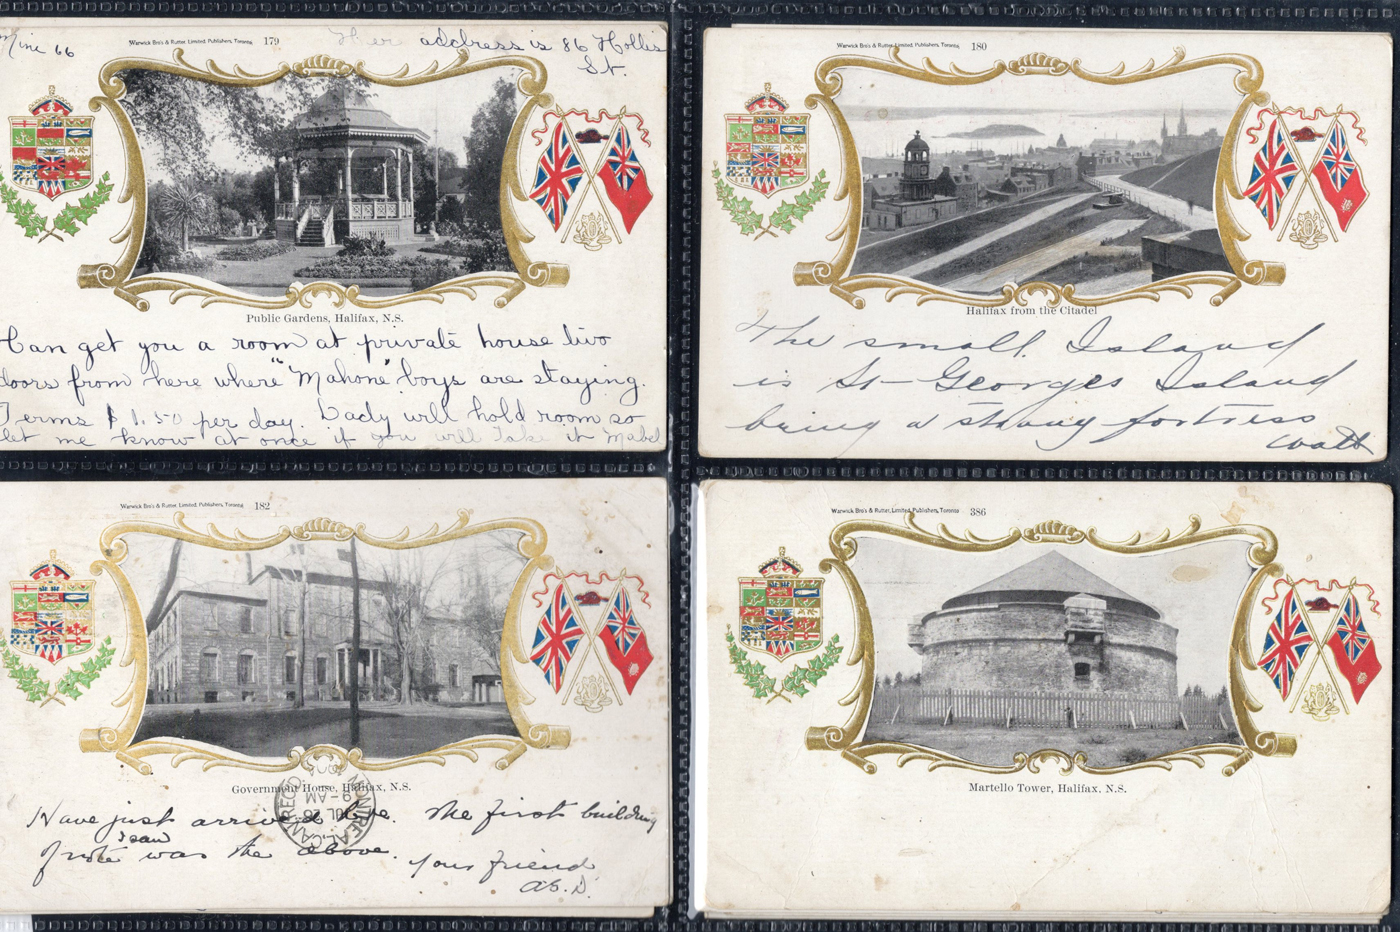 Mini 66
Warwick Bro's & Rutter, Limited, Publishers, Toronto. 179
Their address is 86 Hollis
St.
Public Gardens, Halifax, N.S.
Can get you a room at private house two
doors from here where "Mahone" boys are staying.
Terms $1.50 per day. Lady will hold room so
let me know at once if you will take it Mabel
Warwick Bro's & Rutter, Limited, Publishers, Toronto. 180
Halifax from the Citadel
The small Island
is St-Georges Island
being a strong fortress
Warwick Bro's & Rutter, Limited, Publishers, Toronto. 182
Government House, Halifax, N.S.
MONTREAL, CAN. REC'D
9-AM
JUL 26
Have just arrived here. The first building
I saw
of note was the above.
Your friend
A.G.D.
Warwick Bro's & Rutter, Limited, Publishers, Toronto 386
Martello Tower, Halifax, N.S.